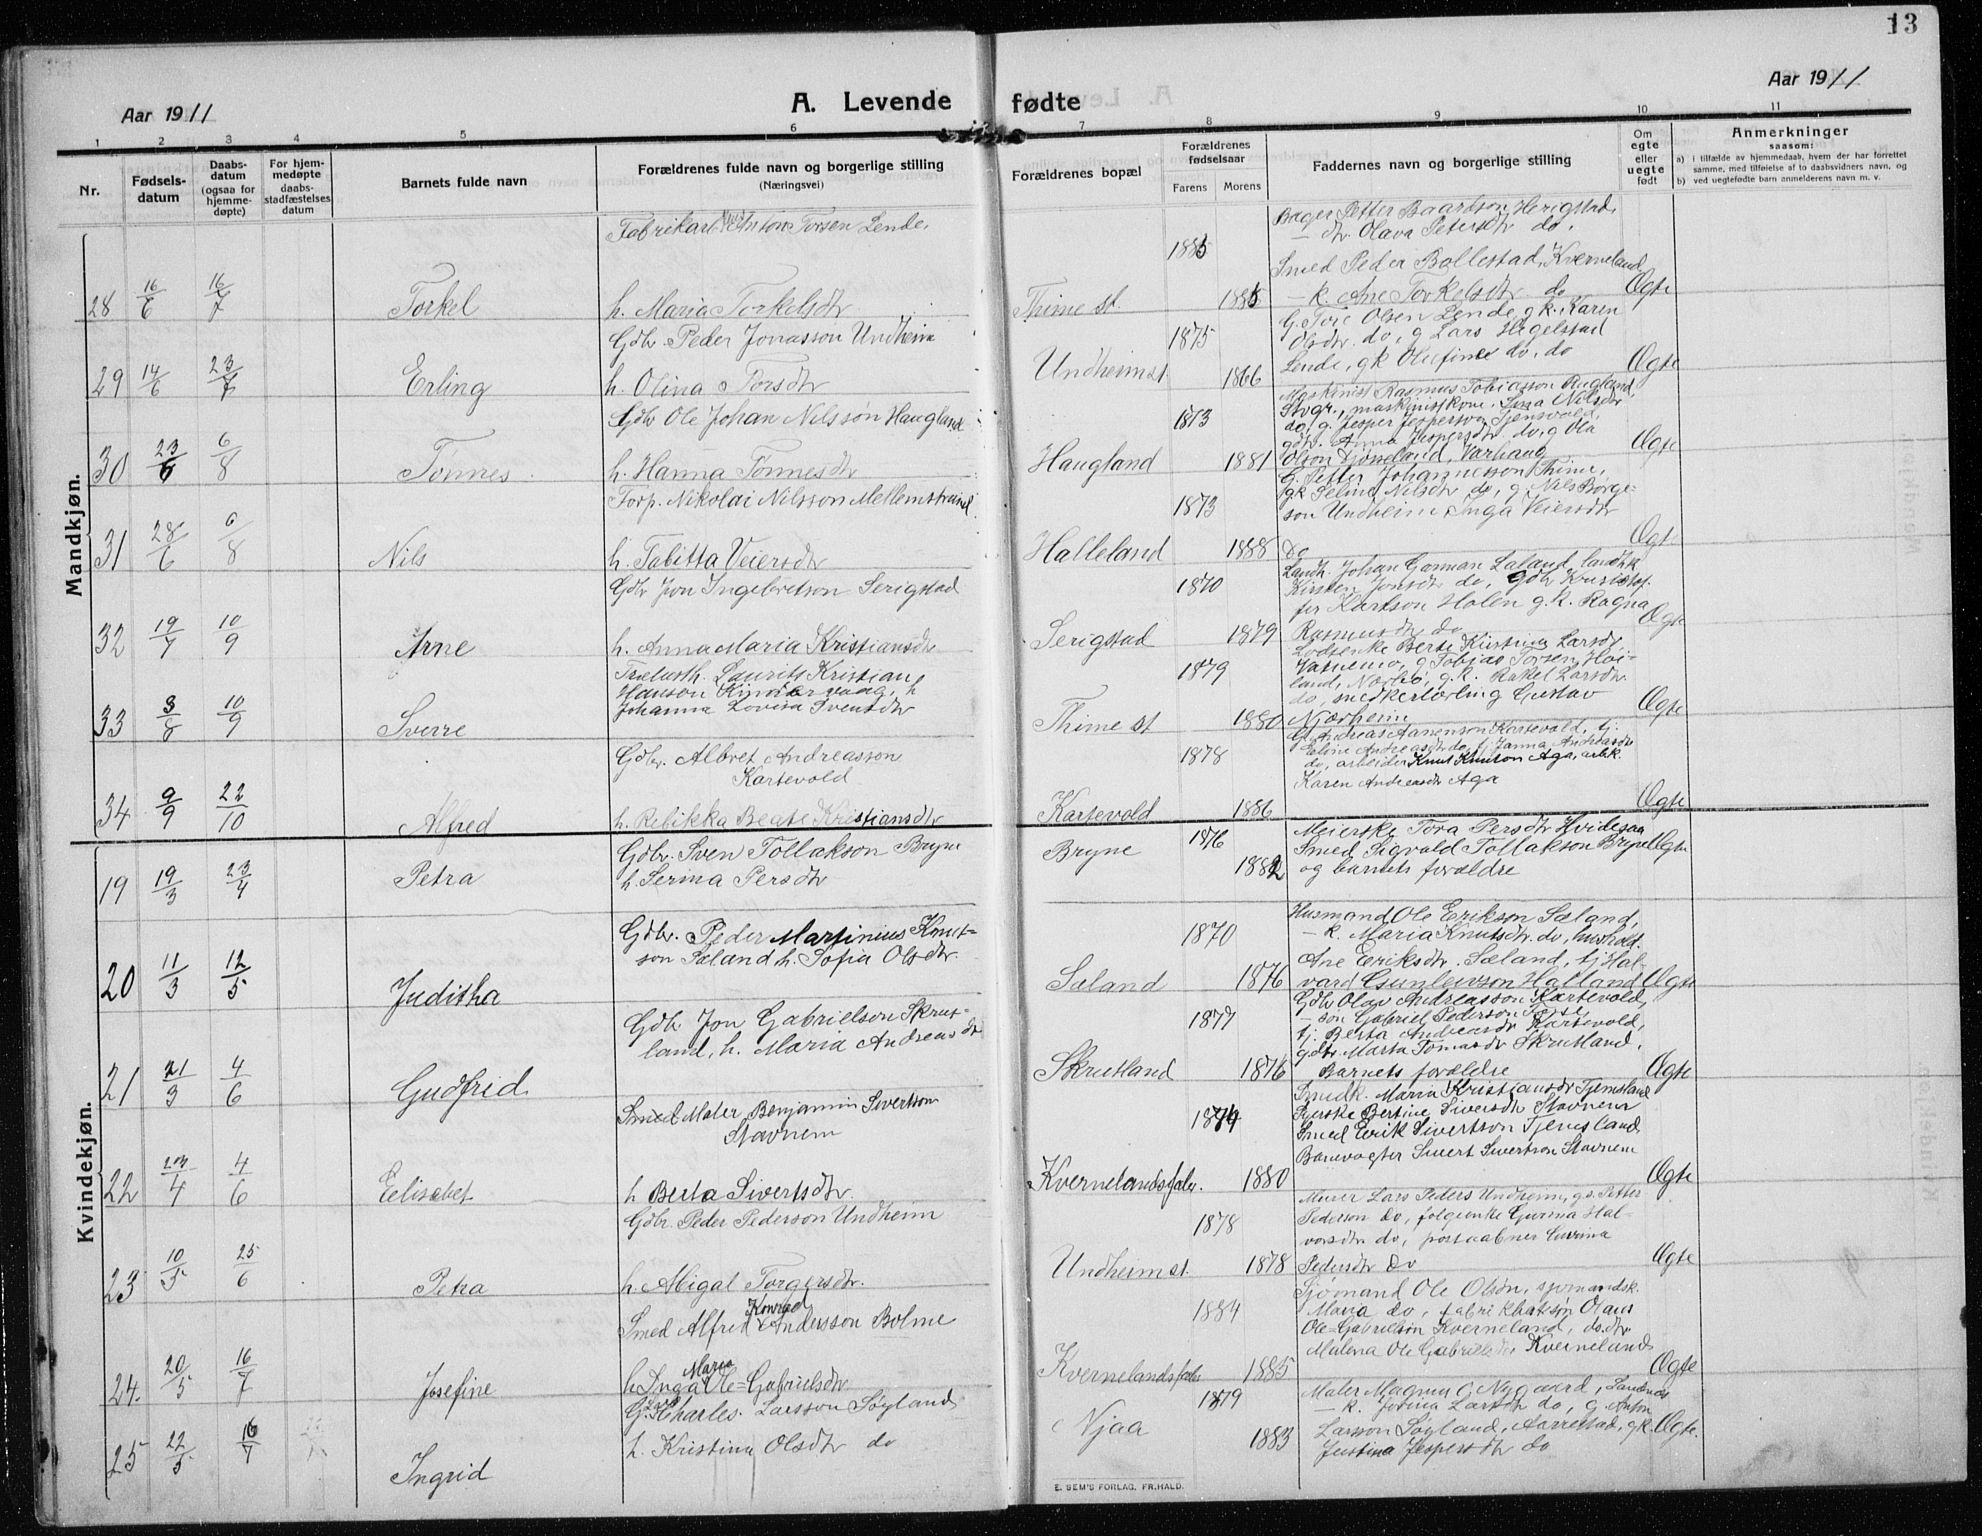 13
Aar 1911
A. Levende fødte
Aar 1911
1 2 3 4 5 6 7 8 9 10 11
Nr.
Fødsels-
datum
Daabs-
datum
(ogsaa for
hjemme-
døpte)
For hjem-
medøpte
daabs-
stadfæstelses
datum
Barnets fulde navn
Forældrenes fulde navn og borgerlige stilling
(Næringsvei)
Forældrenes bopæl
Forældrenes
fødselsaar
Farens
Morens
Faddernes navn og borgerlige stilling
Om
egte
eller
uegte
født
Anmerkninger
saasom:
a) i tilfælde av hjemmedaab, hvem der har forrettet
samme, med tilføielse af to daabsvidners navn, og
b) ved uegtefødte barn anmelderens navn m. v.
Mandkjøn.
28 16/6 16/7 Torkel
Fabrikarb Anton Torsen Lende,
h. Maria Torkelsdtr
Thime st. 1885 1885
Bager Petter Baardson Herigstad,
— dtr Olava Petersdtr do.
Smed Peder Bollestad, Kverneland
— k. Ane Torkelsdtr do
Øgte
29 14/6 23/7 Erling
Gdbr. Peder Jonasson Undheim
h. Olina Torsdtr
Undheim st. 1875 1866
G. Tore Olsen Lende gk. Karen
Olsdtr. do, g Lars Hegelstad
Lende, gk Olufine do, do
Øgte
30 23/6 6/8 Tønnes
Gdbr Ole Johan Nilsson Haugland
h. Hanna Tønnesdtr
Haugland 1873 1881
Maskinist Rasmus Tobiasson
Stvgr., maskinistkone. Nilsdtr
do, g. Jesper Jesperson
gdtr. Anna Jespersdtr do, g Ola
Olson Varhaug
Øgte
31 28/6 6/8 Nils
Forp. Nikolai Nilsson Mellemstrand
h. Tabitta Veiersdtr
Halleland 1873 1888
G. Petter Johannesson Thime,
gk Seline Nilsdtr do, g. Nils Børge-
son Undheim Inga Veiersdtr
Do
Øgte
32 19/7 10/9 Arne
Gdbr Jon Ingebretson Serigstad
h. Anna Maria Kristiansdtr
Serigstad 1870 1879
Landh. Johan Gorman Laland, landhk
Kirsten Jonsdtr do, Gdbr Kristof-
fer Karlson Holen g.k. Ragna
Rasmusdtr do
Øgte
33 3/8 10/9 Sverre
Trælasth. Laurits Kristian
Hanson Kindervaag, h
Johanna Lovisa Svensdtr
Thime st 1879 1880
Lodsenke Berte Kristina Larsdtr
Vatnemo, g Tobias Torsen Høi-
land, Nærbø, g.k. Rakel Larsdtr
do snedkerlærling Gustav
Njærheim
Øgte
34 9/9 22/10 Alfred
Gdbr. Albret Andreasson
Kartevold
h. Rebikka Beate Kristiansdtr
Kartevold 1878 1886
G. Andreas Aanenson Kartevold, tj.
Eline Andreasdtr do, tj Janna Andreasdtr
do, arbeider Knut Knutson Aga, arbk.
Karen Andreasdtr Aga
Øgte
Kvindekjøn.
19 19/3 23/4 Petra
Gdbr. Sven Tollakson Bryne
h. Serina Persdtr
Bryne 1876 1882
Meierske Tora Persdtr Hvidegaa
Smed Sigvald Tollakson Bryne
og barnets forældre
Øgte
20 11/3 12/5 Juditha
Gdbr. Peder Martinius Knut-
son Sæland h. Sofia Olsdtr.
Sæland 1870 1876
Husmand Ole Erikson Sæland,
— k. Maria Knutsdtr. do, hushold.
Ane Eriksdtr. Sæland, tj Hal-
vard Gunlevson Halland
Øgte
21 21/3 4/6 Gudfrid
Gdbr Jon Gabrielsen Skrut-
land, h. Maria Andreasdtr
Skrutland 1877 1876
Gdbr Olav Andreasson Kartevold,
— son Gabriel Pederson
tj. Berta Andreasdtr Kartevold,
gdtr. Marta Tomasdtr Skrutland,
Barnets forældre
Øgte
22 4/6 Elisabet
Smed Maler Benjamin Sivertson
Stavnem
h Berta Sivertsdtr.
Kvernelandsfabr. 1874 1880
Smedk. Maria Kristiansdtr Tjemsland
Syerske Bertine Siversdtr Stavnem
Smed Erik Sivertson Tjemsland
Banevogter Sivert Sivertson Stavnem
Øgte
23 10/5 25/6 Petra
Gdbr. Peder Pederson Undheim
h. Abigal Torgersdtr.
Undheim st. 1878 1878
Murer Lars Peders Undheim, gs. Petter
Pederson do, folgeenke Gurina Hal-
vorsdtr do, postaabner Gurina
Pedersdtr Do
Øgte
24 20/5 16/7 Josefine
Smed Alfred Konrad Andersson Bolme
h Inga Maria Ole=Gabrielsdtr
Kvernelandsfabr 1884 1885
Sjømand Ole Olsøn, sjømandsk.
Maria do, fabrikbaksøn Olaus
Ole=Gabrielson Kverneland, do. dtr
Malena Ole Gabrielsdtr Kverneland
Øgte
25 22/5 16/7 Ingrid
G. Charles. Larsson Søyland
h. Kristina Olsdtr do
Njaa 1879 1883
Maler Magnus G Nygaard, Sandnes
— k. Josina Larsdtr do, g. Anton
Larsson Søyland, Aarrestad, gk.
Justina Jespersdtr do
Øgte.
E. SEM'S FORLAG, FR.HALD.